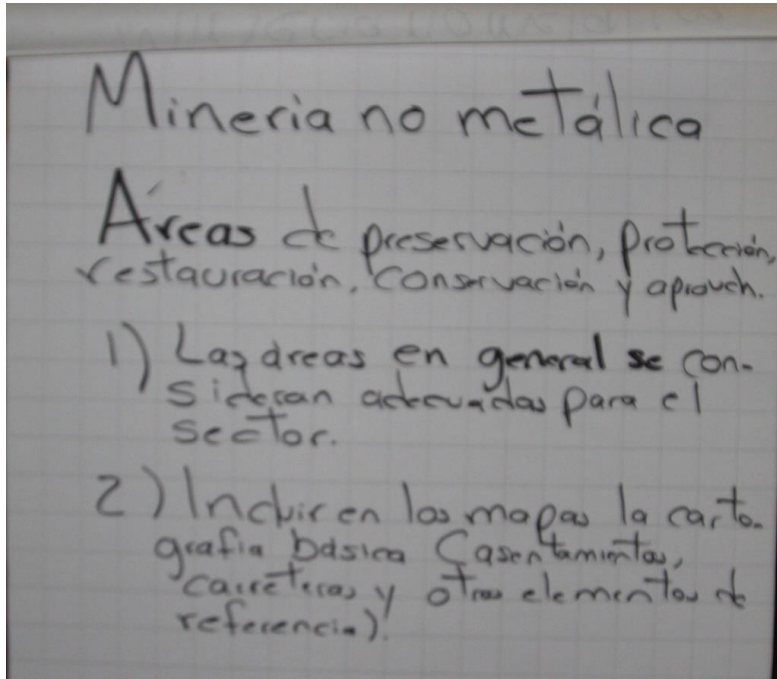 Mineria no metálica
Áreas de preservación, protección,
restauración, conservación y aprovch.
1) Las áreas en general se con-
sideran adecuadas para el
sector.
2) Incluir en los mapas la carto-
grafia básica (asentamientos,
carreteras y otros elementos de
referencia).